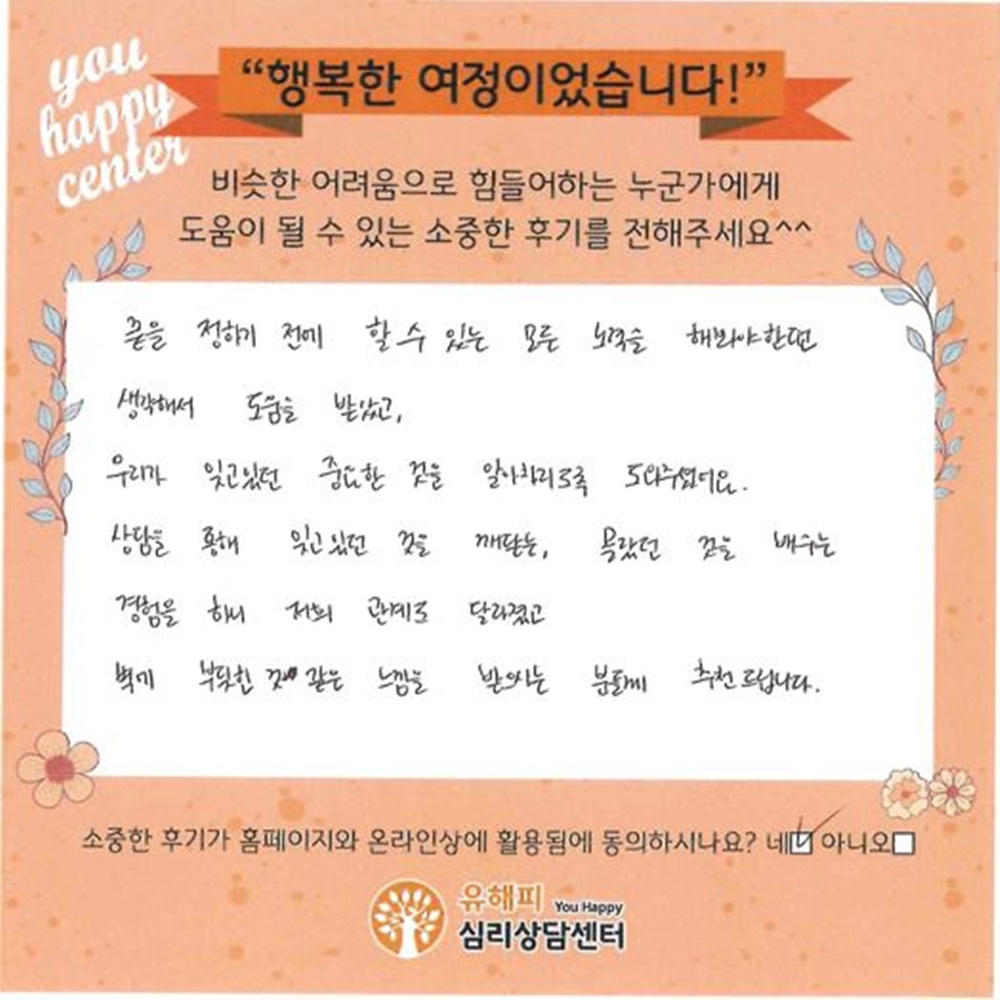 you
happy
center
“행복한 여정이었습니다!”
비슷한 어려움으로 힘들어하는 누군가에게
도움이 될 수 있는 소중한 후기를 전해주세요^^
정하기 전에 할 수 있는 모든 노력을 해봐야한단
생각해서 도움을 받았고,
우리가 잊고있던 중요한 것을 알아차리도록 도와주셨어요.
상담을 통해 잊고있던 것을 깨닫는, 몰랐던 것을 배우는
경험을 하니 저희 관계도 달라졌고
벽에 부딪힌 것 같은 느낌을 받으시는 분들께 추천드립니다.
소중한 후기가 홈페이지와 온라인상에 활용됨에 동의하시나요? 네 아니오
유해피 You Happy
심리상담센터